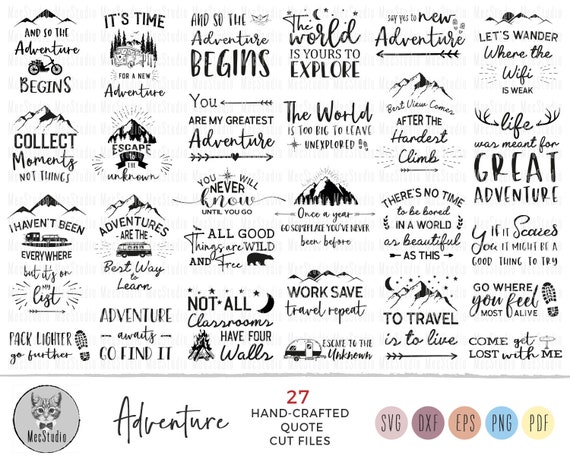 AND SO THE
Adventure
BEGINS
IT'S TIME
FOR A NEW
Adventure
AND SO THE
Adventure
BEGINS
The
world
IS YOURS TO
EXPLORE
say yes to new
Adventure
LET'S WANDER
Where the
Wifi
IS WEAK
COLLECT
Moments
NOT THINGS
ESCAPE
TO THE
unknown
You
ARE MY GREATEST
Adventure
The World
IS TOO BIG TO LEAVE
UNEXPLORED
Best View Comes
AFTER THE
Hardest
Climb
life
was meant for
GREAT
ADVENTURE
I HAVEN'T BEEN
EVERYWHERE
but it's on
MY
list
ADVENTURES
ARE THE
Best Way to
Learn
YOU WILL
NEVER
know
UNTIL YOU GO
ALL GOOD
Things are WILD
AND Free
Once a year
GO SOMEPLACE YOU'VE NEVER
been before
THERE'S NO TIME
to be bored
IN A WORLD
as beautiful
AS THIS
If it Scares
You IT MIGHT BE A
GOOD THING TO TRY
PACK LIGHTER
go further
ADVENTURE
awaits
GO FIND IT
NOT ALL
Classrooms
HAVE FOUR
Walls
WORK SAVE
travel repeat
ESCAPE TO THE
Unknown
TO TRAVEL
is to live
GO WHERE
you feel
MOST ALIVE
COME get
LOST with ME
MecStudio
Adventure
27
HAND-CRAFTED
QUOTE
CUT FILES
SVG DXF EPS PNG PDF